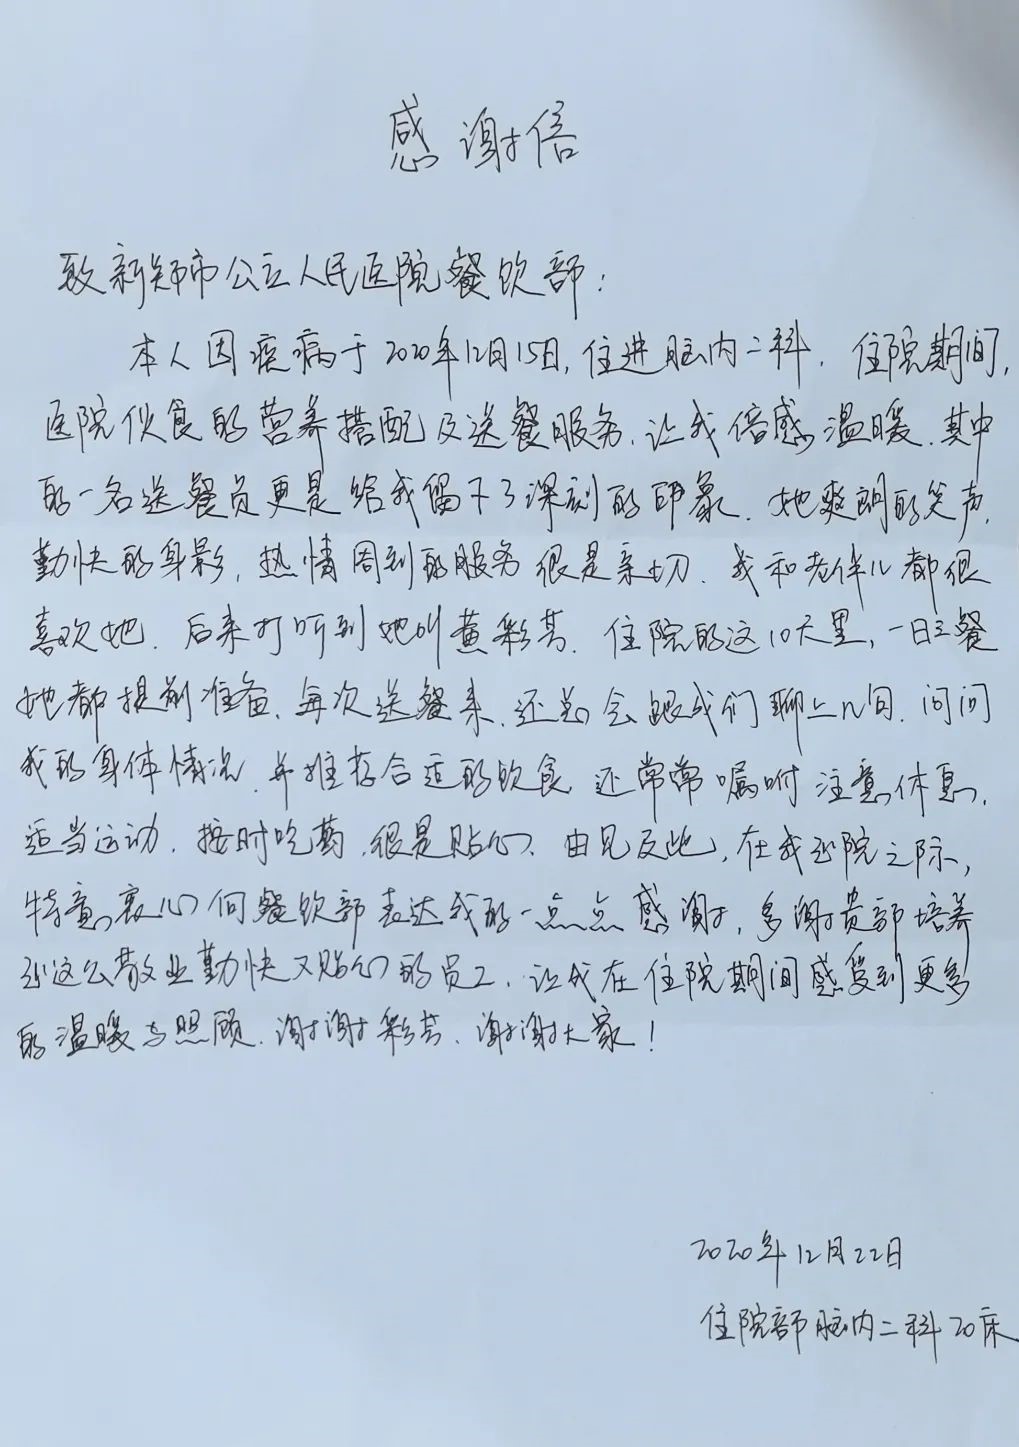 感谢信
致新郑市公立人民医院餐饮部：
本人因疾病于2020年12月15日，住进脑内二科．住院期间，
医院伙食的营养搭配及送餐服务、让我倍感温暖．其中
的一名送餐员更是给我留下了深刻的印象．她爽朗的笑声，
勤快的身影，热情周到的服务很是亲切．我和老伴儿都很
喜欢她．后来打听到她叫黄彩芸．住院的这10天里，一日三餐
她都提前准备、每次送餐来，还总会跟我们聊上几句．问问
我的身体情况．并推荐合适的饮食 还常常嘱咐注意休息，
适当运动．按时吃药．很是贴心．由见及此，在我出院之际，
特意衷心向餐饮部表达我的一点点感谢，多谢贵部培养
出这么敬业勤快又贴心的员工．让我在住院期间感受到更多
的温暖与照顾．谢谢彩芸．谢谢大家！
2020年12月22日
住院部脑内二科20床